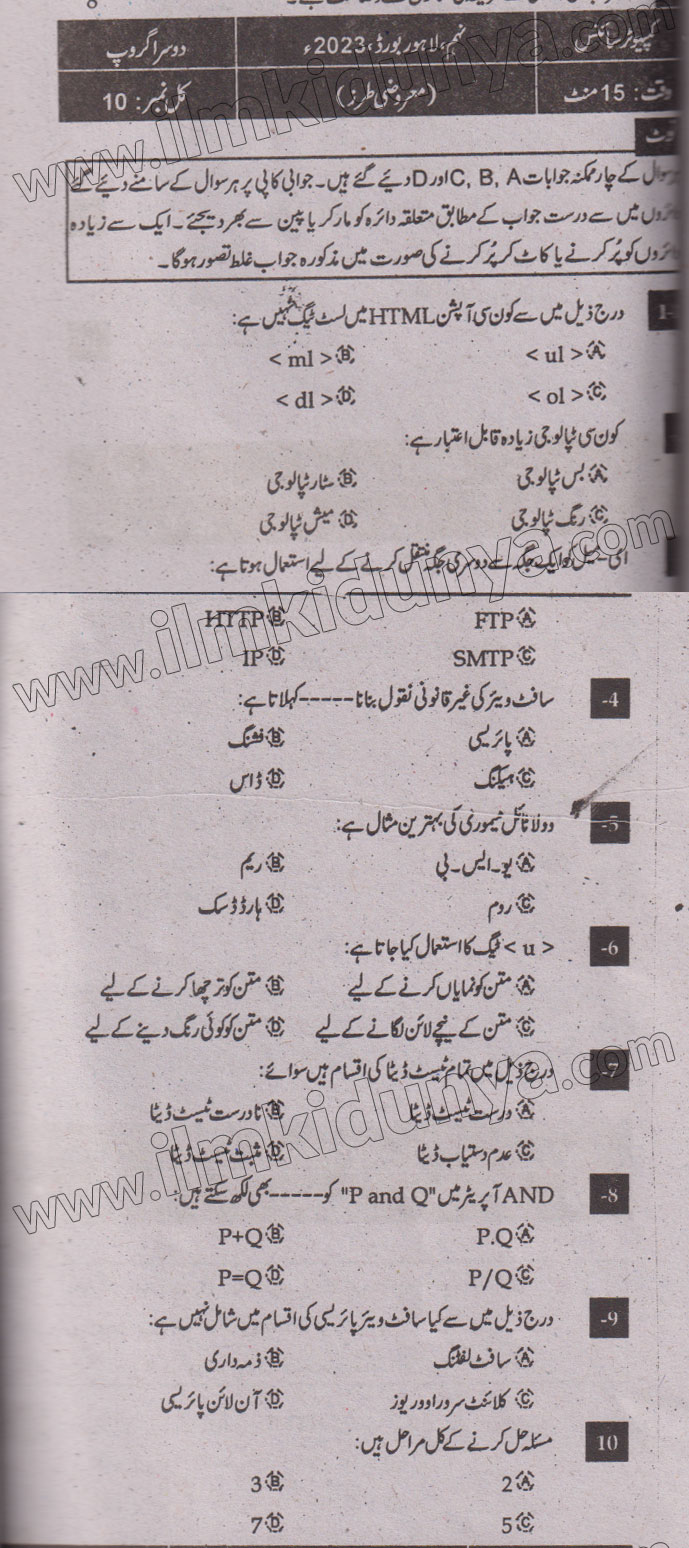 کمپیوٹر سائنس نہم، لاہور بورڈ، 2023ء دوسرا گروپ
وقت: 15 منٹ (معروضی طرز) کل نمبر: 10
نوٹ
ہر سوال کے چار ممکنہ جوابات C, B, A اور D دئیے گئے ہیں۔ جوابی کاپی پر ہر سوال کے سامنے دئیے گئے
دائروں میں سے درست جواب کے مطابق متعلقہ دائرہ کو مارکر یا پین سے بھر دیجئے۔ ایک سے زیادہ
دائروں کو پُر کرنے یا کاٹ کر پُر کرنے کی صورت میں مذکورہ جواب غلط تصور ہوگا۔
1- درج ذیل میں سے کون سی آپشن HTML میں لسٹ ٹیگ نہیں ہے:
(A) < ul > (B) < ml >
(C) < ol > (D) < dl >
کون سی ٹپالوجی زیادہ قابل اعتبار ہے:
(A) بس ٹپالوجی (B) سٹار ٹپالوجی
(C) رنگ ٹپالوجی (D) میش ٹپالوجی
ای-میل کو ایک جگہ سے دوسری جگہ منتقل کرنے کے لیے استعمال ہوتا ہے:
(A) FTP (B) HTTP
(C) SMTP (D) IP
4- سافٹ ویئر کی غیر قانونی نقول بنانا ----- کہلاتا ہے:
(A) پائریسی (B) فشنگ
(C) ہیکنگ (D) ڈاس
5- وولاٹائل میموری کی بہترین مثال ہے:
(A) یو۔ایس۔بی (B) ریم
(C) روم (D) ہارڈ ڈسک
6- < u > ٹیگ کا استعمال کیا جاتا ہے:
(A) متن کو نمایاں کرنے کے لیے (B) متن کو ترچھا کرنے کے لیے
(C) متن کے نیچے لائن لگانے کے لیے (D) متن کو کوئی رنگ دینے کے لیے
7- درج ذیل میں تمام ٹیسٹ ڈیٹا کی اقسام ہیں سوائے:
(A) درست ٹیسٹ ڈیٹا (B) نا درست ٹیسٹ ڈیٹا
(C) عدم دستیاب ڈیٹا (D) مثبت ٹیسٹ ڈیٹا
8- AND آپریٹر میں "P and Q" کو ----- بھی لکھ سکتے ہیں:
(A) P.Q (B) P+Q
(C) P/Q (D) P=Q
9- درج ذیل میں سے کیا سافٹ ویئر پائریسی کی اقسام میں شامل نہیں ہے:
(A) سافٹ لفٹنگ (B) ذمہ داری
(C) کلائنٹ سرور اوور یوز (D) آن لائن پائریسی
10 مسئلہ حل کرنے کے کل مراحل ہیں:
(A) 2 (B) 3
(C) 5 (D) 7
www.ilmkidunya.com
www.ilmkidunya.com
www.ilmkidunya.com